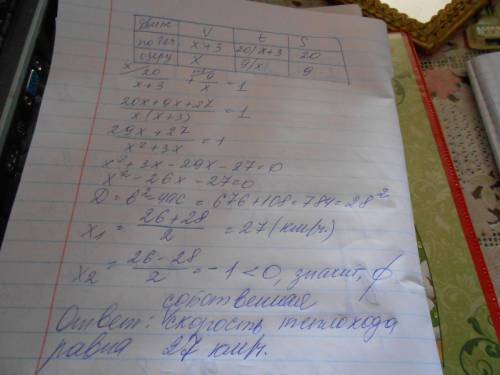 движ V t S
по теч x+3 20/x+3 20
озеру x 9/x 9
20/(x+3) + 9/x = 1
(20x+9x+27)/(x(x+3)) = 1
(29x+27)/(x²+3x) = 1
x²+3x-29x-27=0
x²-26x-27=0
D=b²-4ac=676+108=784=28²
x₁ = (26+28)/2 = 27(км/ч)
x₂ = (26-28)/2 = -1<0, значит, ∅
собственная
Ответ: скорость теплохода
равна 27 км/ч.